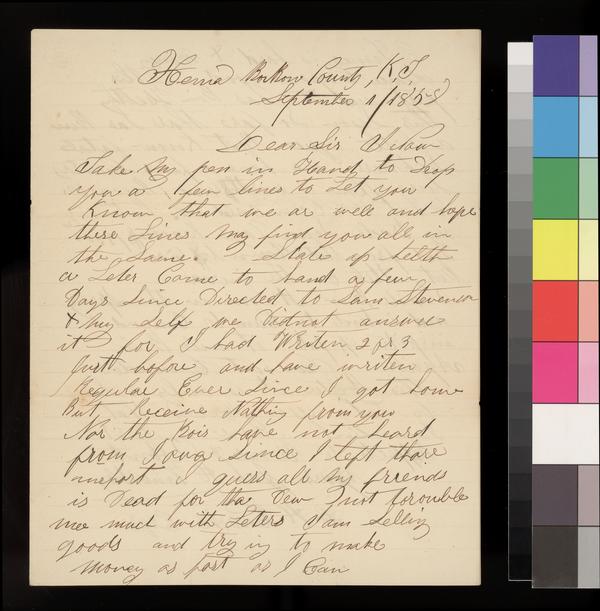 Xenia Borbon County, K, T,
September 1/1858
Dear Sir I Now
Take My pen in Hand to Drop
you a few lines to Let you
Know that we ar well and hope
these Lines May find you all in
the Same. State of helth
a Leter Came to hand a few
Days Since Directed to Sam Stevenson
& My Self we Did not answer
it for I had Writen 2 or 3
Just before and have writen
Regular Ever Since I got home
But Receive Nothing from you
Nor the Bois have not heard
from Iowa Since I left thare
I guess all My friends
is Dead for tha Dew Just
me much with Leters I am Selling
goods and trying to make
Money as fast as I Can